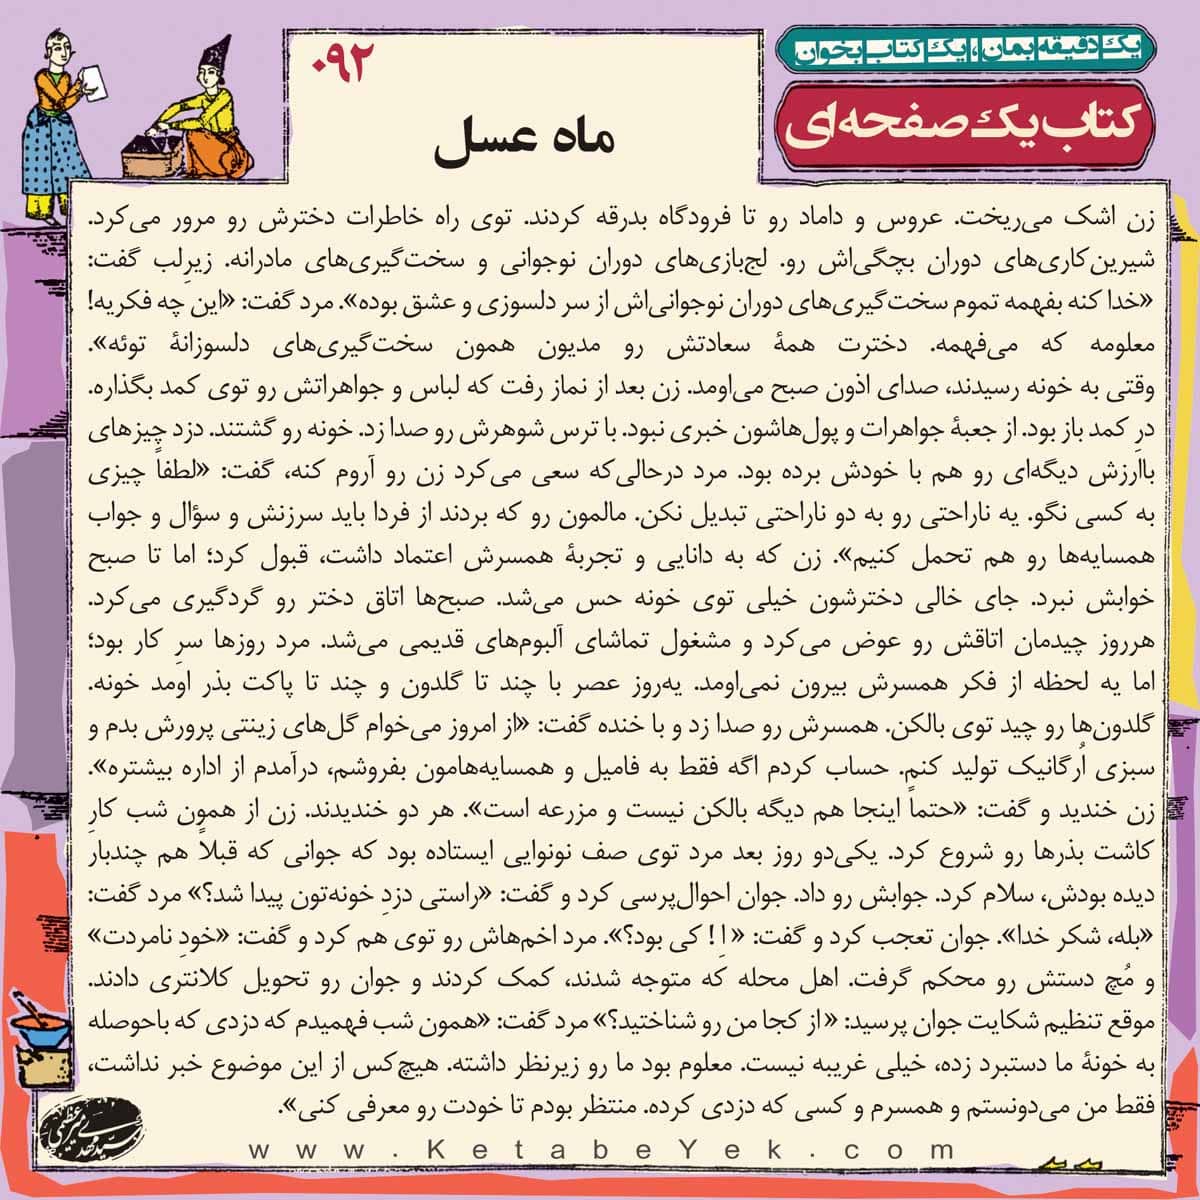 یک دقیقه بمان، یک کتاب بخوان
کتاب یک صفحه‌ای
۰۹۲
ماه عسل
زن اشک می‌ریخت. عروس و داماد رو تا فرودگاه بدرقه کردند. توی راه خاطرات دخترش رو مرور می‌کرد.
شیرین‌کاری‌های دوران بچگی‌اش رو. لج‌بازی‌های دوران نوجوانی و سخت‌گیری‌های مادرانه. زیرِلب گفت:
«خدا کنه بفهمه تموم سخت‌گیری‌های دوران نوجوانی‌اش از سر دلسوزی و عشق بوده». مرد گفت: «این چه فکریه!
معلومه که می‌فهمه. دخترت همهٔ سعادتش رو مدیون همون سخت‌گیری‌های دلسوزانهٔ توئه».
وقتی به خونه رسیدند، صدای اذون صبح می‌اومد. زن بعد از نماز رفت که لباس و جواهراتش رو توی کمد بگذاره.
درِ کمد باز بود. از جعبهٔ جواهرات و پول‌هاشون خبری نبود. با ترس شوهرش رو صدا زد. خونه رو گشتند. دزد چیزهای
باارزش دیگه‌ای رو هم با خودش برده بود. مرد درحالی‌که سعی می‌کرد زن رو آروم کنه، گفت: «لطفاً چیزی
به کسی نگو. یه ناراحتی رو به دو ناراحتی تبدیل نکن. مالمون رو که بردند از فردا باید سرزنش و سؤال و جواب
همسایه‌ها رو هم تحمل کنیم». زن که به دانایی و تجربهٔ همسرش اعتماد داشت، قبول کرد؛ اما تا صبح
خوابش نبرد. جای خالی دخترشون خیلی توی خونه حس می‌شد. صبح‌ها اتاق دختر رو گردگیری می‌کرد.
هرروز چیدمان اتاقش رو عوض می‌کرد و مشغول تماشای آلبوم‌های قدیمی می‌شد. مرد روزها سرِ کار بود؛
اما یه لحظه از فکر همسرش بیرون نمی‌اومد. یه‌روز عصر با چند تا گلدون و چند تا پاکت بذر اومد خونه.
گلدون‌ها رو چید توی بالکن. همسرش رو صدا زد و با خنده گفت: «از امروز می‌خوام گل‌های زینتی پرورش بدم و
سبزی اُرگانیک تولید کنم. حساب کردم اگه فقط به فامیل و همسایه‌هامون بفروشم، درآمدم از اداره بیشتره».
زن خندید و گفت: «حتماً اینجا هم دیگه بالکن نیست و مزرعه است». هر دو خندیدند. زن از همون شب کارِ
کاشت بذرها رو شروع کرد. یکی‌دو روز بعد مرد توی صف نونوایی ایستاده بود که جوانی که قبلاً هم چندبار
دیده بودش، سلام کرد. جوابش رو داد. جوان احوال‌پرسی کرد و گفت: «راستی دزدِ خونه‌تون پیدا شد؟» مرد گفت:
«بله، شکر خدا». جوان تعجب کرد و گفت: «اِ! کی بود؟». مرد اخم‌هاش رو توی هم کرد و گفت: «خودِ نامردت»
و مُچ دستش رو محکم گرفت. اهل محله که متوجه شدند، کمک کردند و جوان رو تحویل کلانتری دادند.
موقع تنظیم شکایت جوان پرسید: «از کجا من رو شناختید؟» مرد گفت: «همون شب فهمیدم که دزدی که باحوصله
به خونهٔ ما دستبرد زده، خیلی غریبه نیست. معلوم بود ما رو زیرنظر داشته. هیچ‌کس از این موضوع خبر نداشت،
فقط من می‌دونستم و همسرم و کسی که دزدی کرده. منتظر بودم تا خودت رو معرفی کنی».
www.KetabeYek.com